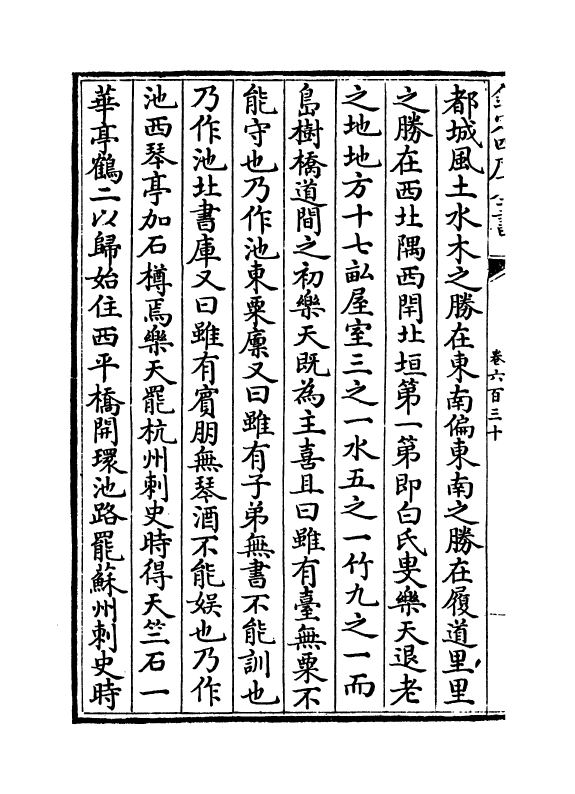 欽定四庫全書
卷六百三十
都城風土水木之勝在東南偏東南之勝在履道里里
之勝在西北隅西閈北垣第一第即白氏叟樂天退老
之地地方十七畝屋室三之一水五之一竹九之一而
島樹橋道間之初樂天既為主喜且曰雖有臺無粟不
能守也乃作池東粟廪又曰雖有子弟無書不能訓也
乃作池北書庫又曰雖有賓朋無琴酒不能娱也乃作
池西琴亭加石樽焉樂天罷杭州刺史時得天竺石一
華亭鶴二以歸始住西平橋開環池路罷蘇州刺史時